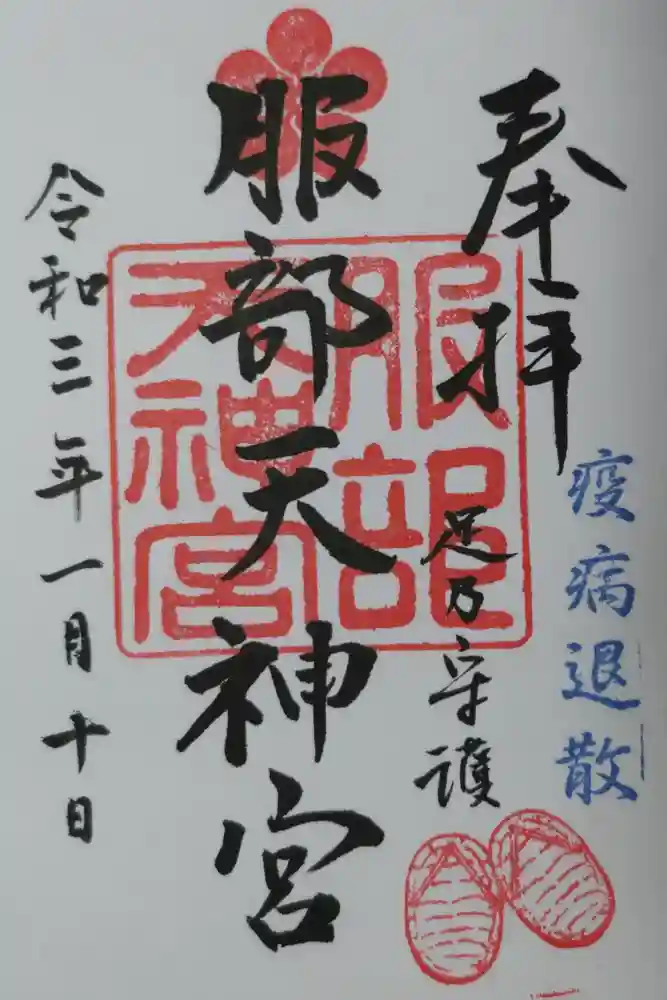 奉拝
疫病退散
足乃守護
服部天神宮
服部
天神宮
令和三年一月十日